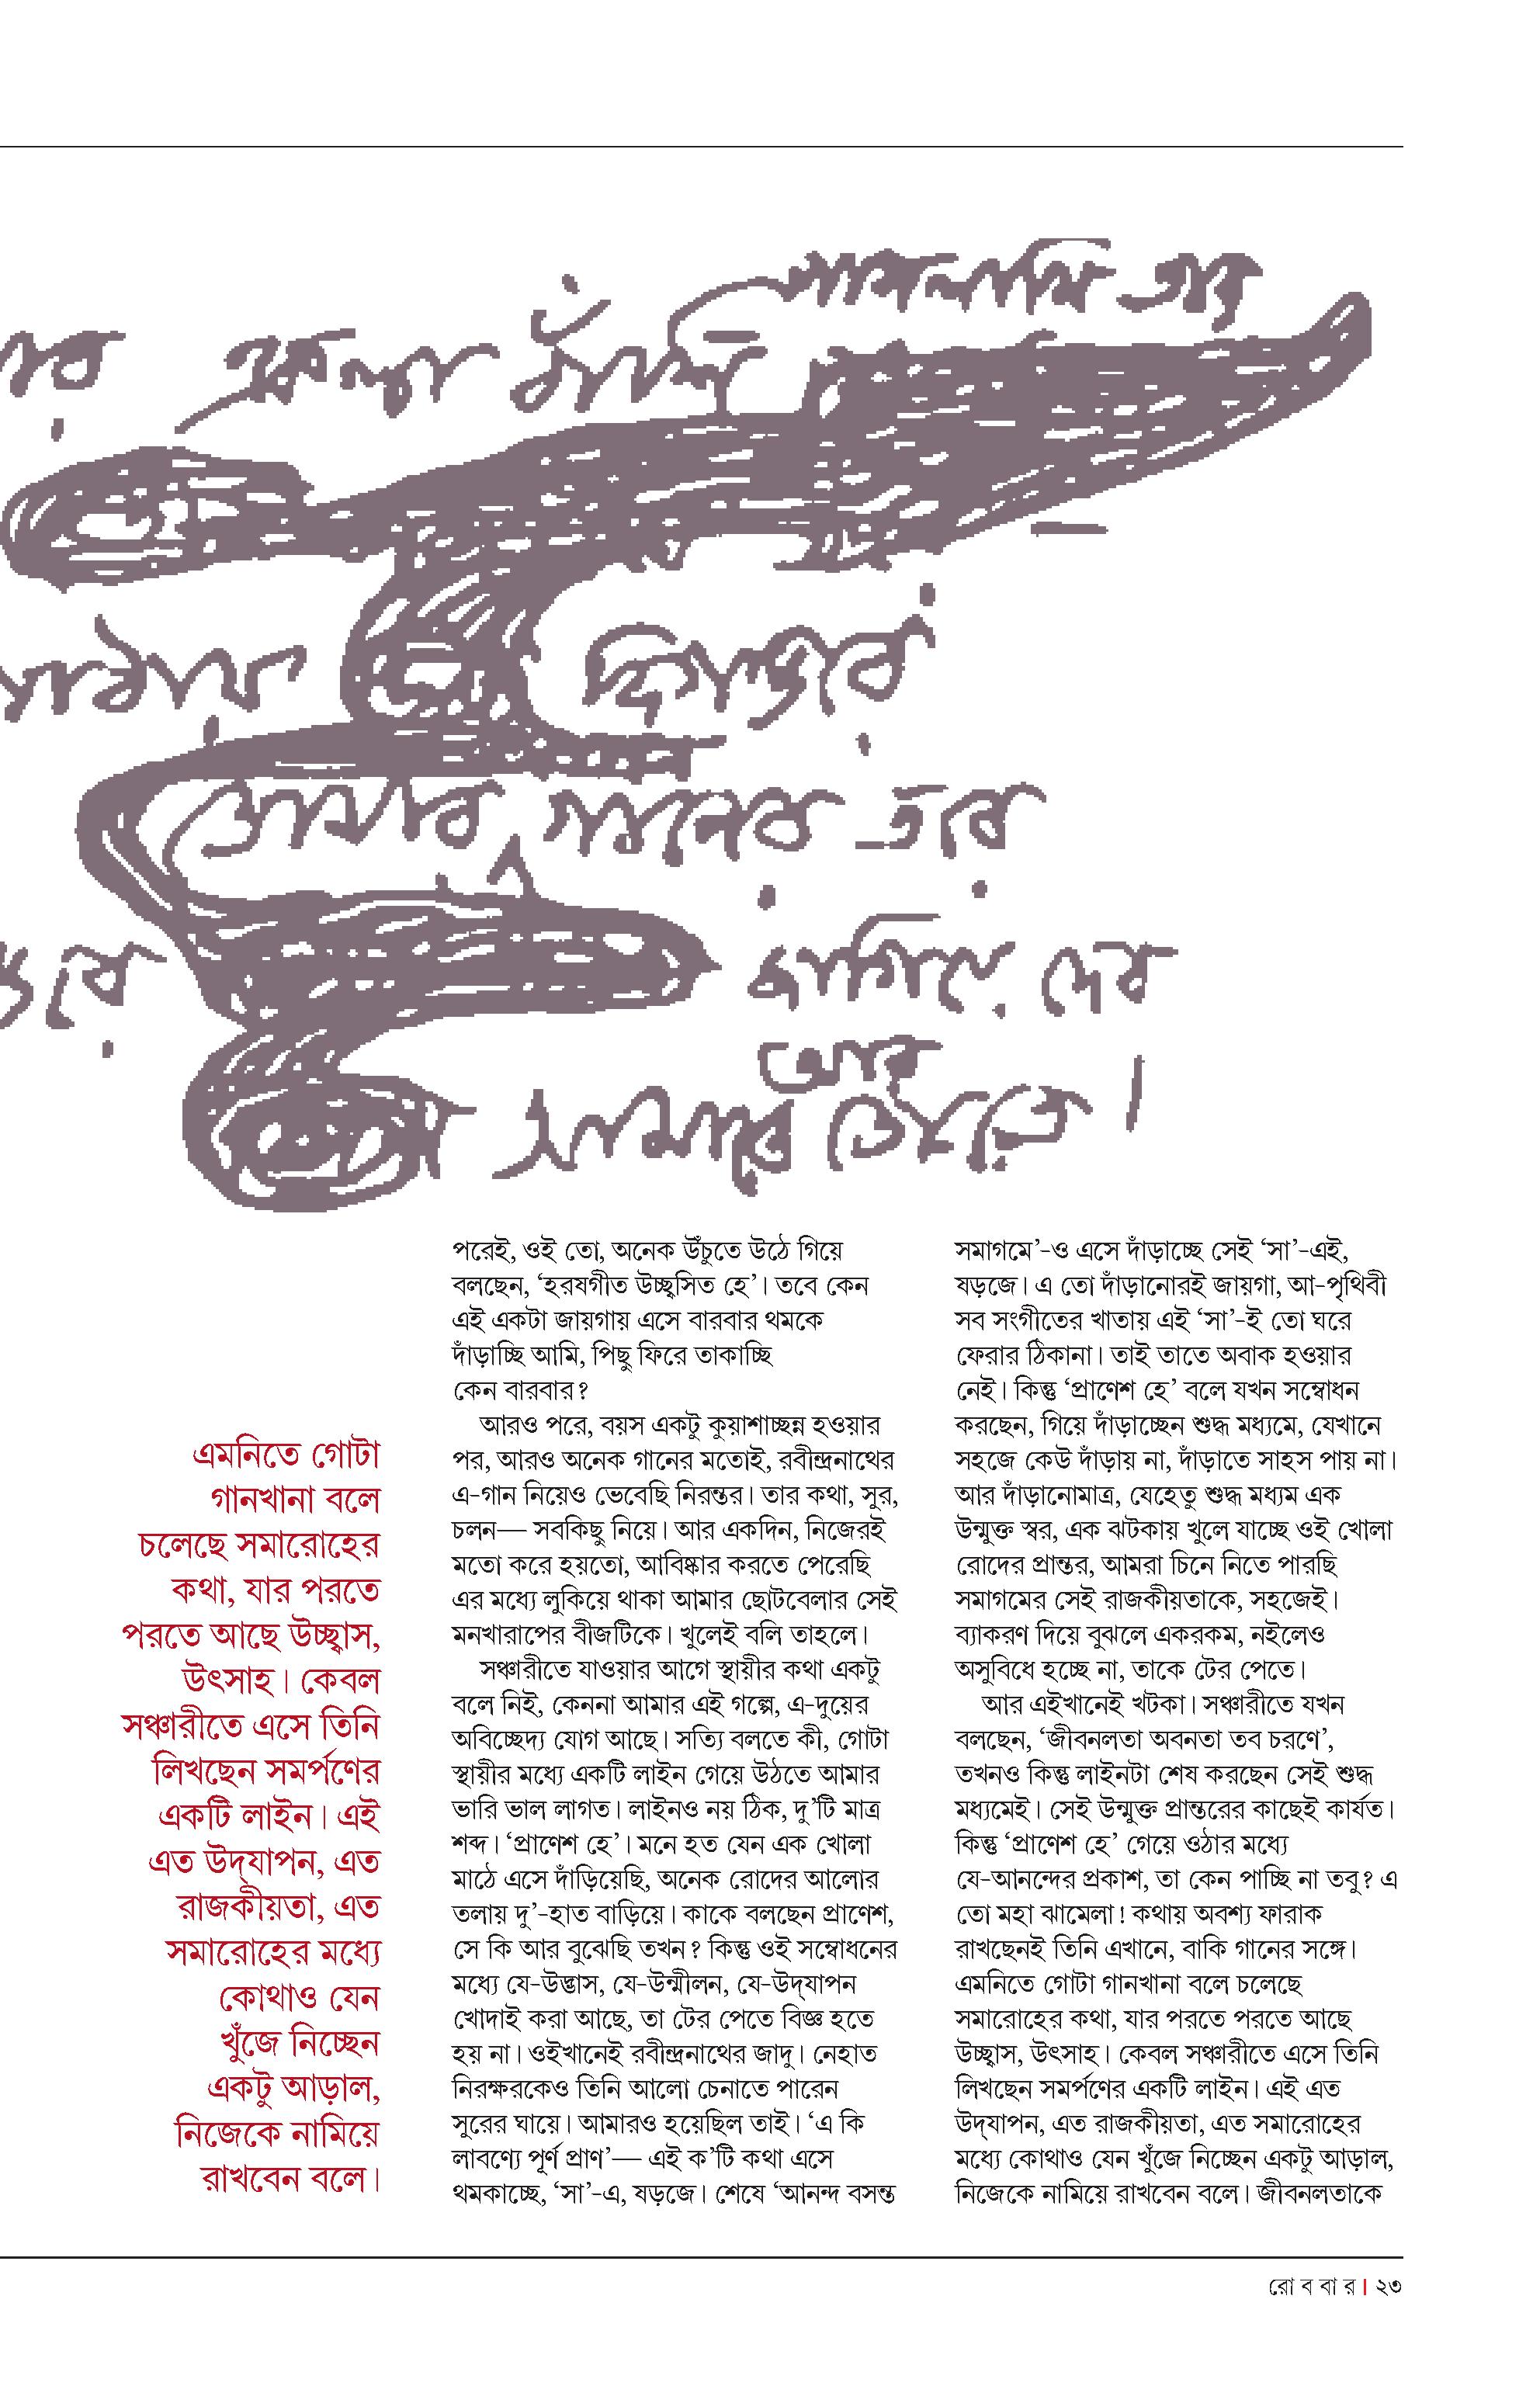 একলা
দিগন্তরে
তোমার গানের তরে
জাগিয়ে দেব
আর
আমার
এমনিতে গোটা
গানখানা বলে
চলেছে সমারোহের
কথা, যার পরতে
পরতে আছে উচ্ছ্বাস,
উৎসাহ। কেবল
সঞ্চারীতে এসে তিনি
লিখছেন সমর্পণের
একটি লাইন। এই
এত উদ্‌যাপন, এত
রাজকীয়তা, এত
সমারোহের মধ্যে
কোথাও যেন
খুঁজে নিচ্ছেন
একটু আড়াল,
নিজেকে নামিয়ে
রাখবেন বলে।
পরেই, ওই তো, অনেক উঁচুতে উঠে গিয়ে
বলছেন, ‘হরষগীত উচ্ছ্বসিত হে’। তবে কেন
এই একটা জায়গায় এসে বারবার থমকে
দাঁড়াচ্ছি আমি, পিছু ফিরে তাকাচ্ছি
কেন বারবার?
আরও পরে, বয়স একটু কুয়াশাচ্ছন্ন হওয়ার
পর, আরও অনেক গানের মতোই, রবীন্দ্রনাথের
এ-গান নিয়েও ভেবেছি নিরন্তর। তার কথা, সুর,
চলন— সবকিছু নিয়ে। আর একদিন, নিজেরই
মতো করে হয়তো, আবিষ্কার করতে পেরেছি
এর মধ্যে লুকিয়ে থাকা আমার ছোটবেলার সেই
মনখারাপের বীজটিকে। খুলেই বলি তাহলে।
সঞ্চারীতে যাওয়ার আগে স্থায়ীর কথা একটু
বলে নিই, কেননা আমার এই গল্পে, এ-দুয়ের
অবিচ্ছেদ্য যোগ আছে। সত্যি বলতে কী, গোটা
স্থায়ীর মধ্যে একটি লাইন গেয়ে উঠতে আমার
ভারি ভাল লাগত। লাইনও নয় ঠিক, দু’টি মাত্র
শব্দ। ‘প্রাণেশ হে’। মনে হত যেন এক খোলা
মাঠে এসে দাঁড়িয়েছি, অনেক রোদের আলোর
তলায় দু’-হাত বাড়িয়ে। কাকে বলছেন প্রাণেশ,
সে কি আর বুঝেছি তখন? কিন্তু ওই সম্বোধনের
মধ্যে যে-উদ্ভাস, যে-উন্মীলন, যে-উদ্‌যাপন
খোদাই করা আছে, তা টের পেতে বিজ্ঞ হতে
হয় না। ওইখানেই রবীন্দ্রনাথের জাদু। নেহাত
নিরক্ষরকেও তিনি আলো চেনাতে পারেন
সুরের ঘায়ে। আমারও হয়েছিল তাই। ‘এ কি
লাবণ্যে পূর্ণ প্রাণ’— এই ক’টি কথা এসে
থমকাচ্ছে, ‘সা’-এ, ষড়জে। শেষে ‘আনন্দ বসন্ত
সমাগমে’-ও এসে দাঁড়াচ্ছে সেই ‘সা’-এই,
ষড়জে। এ তো দাঁড়ানোরই জায়গা, আ-পৃথিবী
সব সংগীতের খাতায় এই ‘সা’-ই তো ঘরে
ফেরার ঠিকানা। তাই তাতে অবাক হওয়ার
নেই। কিন্তু ‘প্রাণেশ হে’ বলে যখন সম্বোধন
করছেন, গিয়ে দাঁড়াচ্ছেন শুদ্ধ মধ্যমে, যেখানে
সহজে কেউ দাঁড়ায় না, দাঁড়াতে সাহস পায় না।
আর দাঁড়ানোমাত্র, যেহেতু শুদ্ধ মধ্যম এক
উন্মুক্ত স্বর, এক ঝটকায় খুলে যাচ্ছে ওই খোলা
রোদের প্রান্তর, আমরা চিনে নিতে পারছি
সমাগমের সেই রাজকীয়তাকে, সহজেই।
ব্যাকরণ দিয়ে বুঝলে একরকম, নইলেও
অসুবিধে হচ্ছে না, তাকে টের পেতে।
আর এইখানেই খটকা। সঞ্চারীতে যখন
বলছেন, ‘জীবনলতা অবনতা তব চরণে’,
তখনও কিন্তু লাইনটা শেষ করছেন সেই শুদ্ধ
মধ্যমেই। সেই উন্মুক্ত প্রান্তরের কাছেই কার্যত।
কিন্তু ‘প্রাণেশ হে’ গেয়ে ওঠার মধ্যে
যে-আনন্দের প্রকাশ, তা কেন পাচ্ছি না তবু? এ
তো মহা ঝামেলা! কথায় অবশ্য ফারাক
রাখছেনই তিনি এখানে, বাকি গানের সঙ্গে।
এমনিতে গোটা গানখানা বলে চলেছে
সমারোহের কথা, যার পরতে পরতে আছে
উচ্ছ্বাস, উৎসাহ। কেবল সঞ্চারীতে এসে তিনি
লিখছেন সমর্পণের একটি লাইন। এই এত
উদ্‌যাপন, এত রাজকীয়তা, এত সমারোহের
মধ্যে কোথাও যেন খুঁজে নিচ্ছেন একটু আড়াল,
নিজেকে নামিয়ে রাখবেন বলে। জীবনলতাকে
রোববার। ২৩